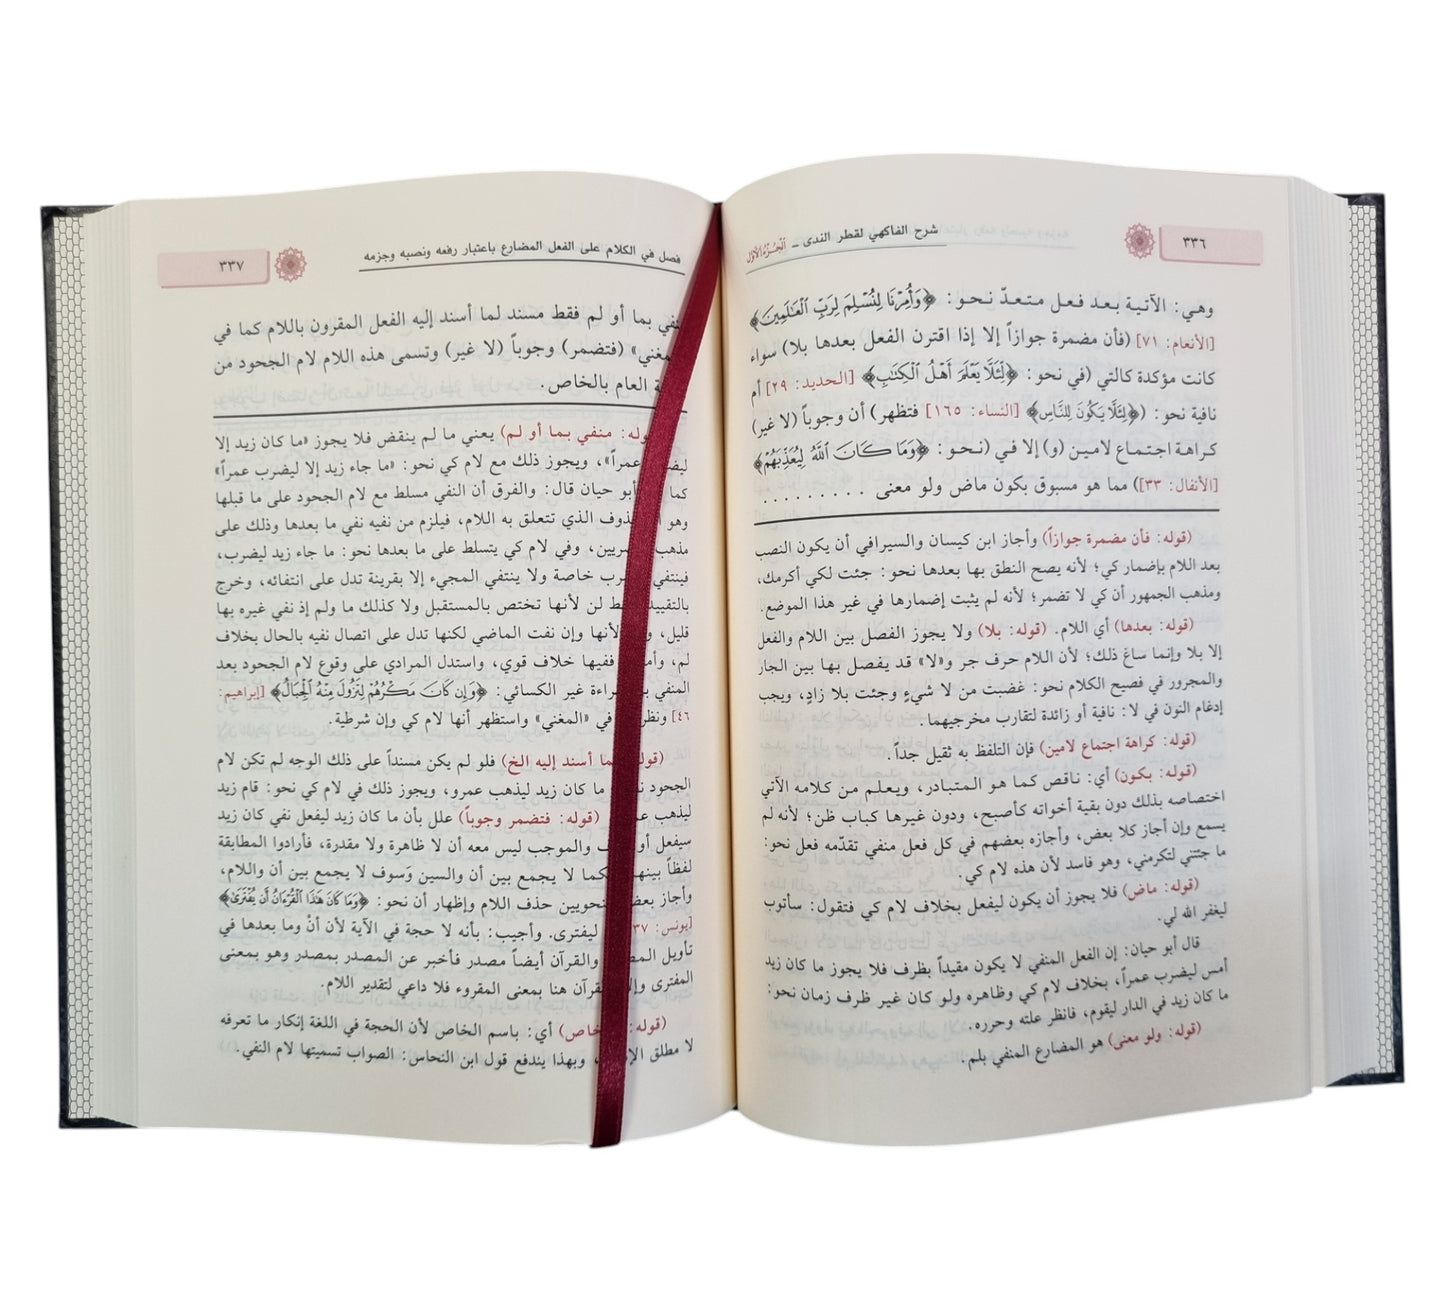 ٣٣٦
شرح الفاكهي لقطر الندى ـ الجزء الأول
وهي: الآتية بعد فعل متعدّ نحو: ﴿وَأُمِرْنَا لِنُسْلِمَ لِرَبِّ ٱلْعَٰلَمِينَ﴾
[الأنعام: ٧١] (فأن مضمرة جوازاً إلا إذا اقترن الفعل بعدها بلا) سواء
كانت مؤكدة كالتي (في نحو: ﴿لِئَلَّا يَعْلَمَ أَهْلُ ٱلْكِتَٰبِ﴾ [الحديد: ٢٩] أم
نافية نحو: (﴿لِئَلَّا يَكُونَ لِلنَّاسِ﴾ [النساء: ١٦٥] فتظهر) أن وجوباً (لا غير)
كراهة اجتماع لامين (و) إلا في (نحو: ﴿وَمَا كَانَ ٱللَّهُ لِيُعَذِّبَهُمْ﴾
[الأنفال: ٣٣]) مما هو مسبوق بكون ماض ولو معنى . . . . . . . . .
(قوله: فأن مضمرة جوازاً) وأجاز ابن كيسان والسيرافي أن يكون النصب
بعد اللام بإضمار كي؛ لأنه يصح النطق بها بعدها نحو: جئت لكي أكرمك،
ومذهب الجمهور أن كي لا تضمر؛ لأنه لم يثبت إضمارها في غير هذا الموضع.
(قوله: بعدها) أي اللام. (قوله: بلا) ولا يجوز الفصل بين اللام والفعل
إلا بلا وإنما ساغ ذلك؛ لأن اللام حرف جر و«لا» قد يفصل بها بين الجار
والمجرور في فصيح الكلام نحو: غضبت من لا شيءٍ وجئت بلا زادٍ، ويجب
إدغام النون في لا: نافية أو زائدة لتقارب مخرجيهما.
(قوله: كراهة اجتماع لامين) فإن التلفظ به ثقيل جداً.
(قوله: بكون) أي: ناقص كما هو المتبادر، ويعلم من كلامه الآتي
اختصاصه بذلك دون بقية أخواته كأصبح، ودون غيرها كباب ظن؛ لأنه لم
يسمع وإن أجاز كلا بعض، وأجازه بعضهم في كل فعل منفي تقدّمه فعل نحو:
ما جئتني لتكرمني، وهو فاسد لأن هذه لام كي.
(قوله: ماض) فلا يجوز أن يكون ليفعل بخلاف لام كي فتقول: سأتوب
ليغفر الله لي.
قال أبو حيان: إن الفعل المنفي لا يكون مقيداً بظرف فلا يجوز ما كان زيد
أمس ليضرب عمراً، بخلاف لام كي وظاهره ولو كان غير ظرف زمان نحو:
ما كان زيد في الدار ليقوم، فانظر علته وحرره.
(قوله: ولو معنى) هو المضارع المنفي بلم.
فصل في الكلام على الفعل المضارع باعتبار رفعه ونصبه وجزمه
٣٣٧
بما أو لم فقط مسند لما أسند إليه الفعل المقرون باللام كما في
(فتضمر) وجوباً (لا غير) وتسمى هذه اللام لام الجحود من
العام بالخاص.
منفي بما أو لم) يعني ما لم ينقض فلا يجوز «ما كان زيد إلا
عمراً»، ويجوز ذلك مع لام كي نحو: «ما جاء زيد إلا ليضرب عمراً»
كما أبو حيان قال: والفرق أن النفي مسلط مع لام الجحود على ما قبلها
وهو الذي تتعلق به اللام، فيلزم من نفيه نفي ما بعدها وذلك على
مذهب وفي لام كي يتسلط على ما بعدها نحو: ما جاء زيد ليضرب،
فينتفي خاصة ولا ينتفي المجيء إلا بقرينة تدل على انتفائه، وخرج
بالتقييد لن لأنها تختص بالمستقبل ولا كذلك ما ولم إذ نفي غيره بها
قليل، لأنها وإن نفت الماضي لكنها تدل على اتصال نفيه بالحال بخلاف
لم، ففيها خلاف قوي، واستدل المرادي على وقوع لام الجحود بعد
المنفي غير الكسائي: ﴿وَإِن كَانَ مَكْرُهُمْ لِتَزُولَ مِنْهُ ٱلْجِبَالُ﴾ [إبراهيم:
٤٦] في «المغني» واستظهر أنها لام كي وإن شرطية.
أسند إليه الخ) فلو لم يكن مسنداً على ذلك الوجه لم تكن لام
الجحود ما كان زيد ليذهب عمرو، ويجوز ذلك في لام كي نحو: قام زيد
ليذهب (قوله: فتضمر وجوباً) علل بأن ما كان زيد ليفعل نفي كان زيد
سيفعل أو والموجب ليس معه أن لا ظاهرة ولا مقدرة، فأرادوا المطابقة
لفظاً لا يجمع بين أن والسين وَسوف لا يجمع بين أن واللام،
وأجاز بعض حذف اللام وإظهار أن نحو: ﴿وَمَا كَانَ هَٰذَا ٱلْقُرْءَانُ أَن يُفْتَرَىٰ﴾
[يونس: ٣٧ ليفترى. وأجيب: بأنه لا حجة في الآية لأن أنْ وما بعدها في
تأويل والقرآن أيضاً مصدر فأخبر عن المصدر بمصدر وهو بمعنى
المفترى هنا بمعنى المقروء فلا داعي لتقدير اللام.
(قوله: أي: باسم الخاص لأن الحجة في اللغة إنكار ما تعرفه
لا مطلق وبهذا يندفع قول ابن النحاس: الصواب تسميتها لام النفي.